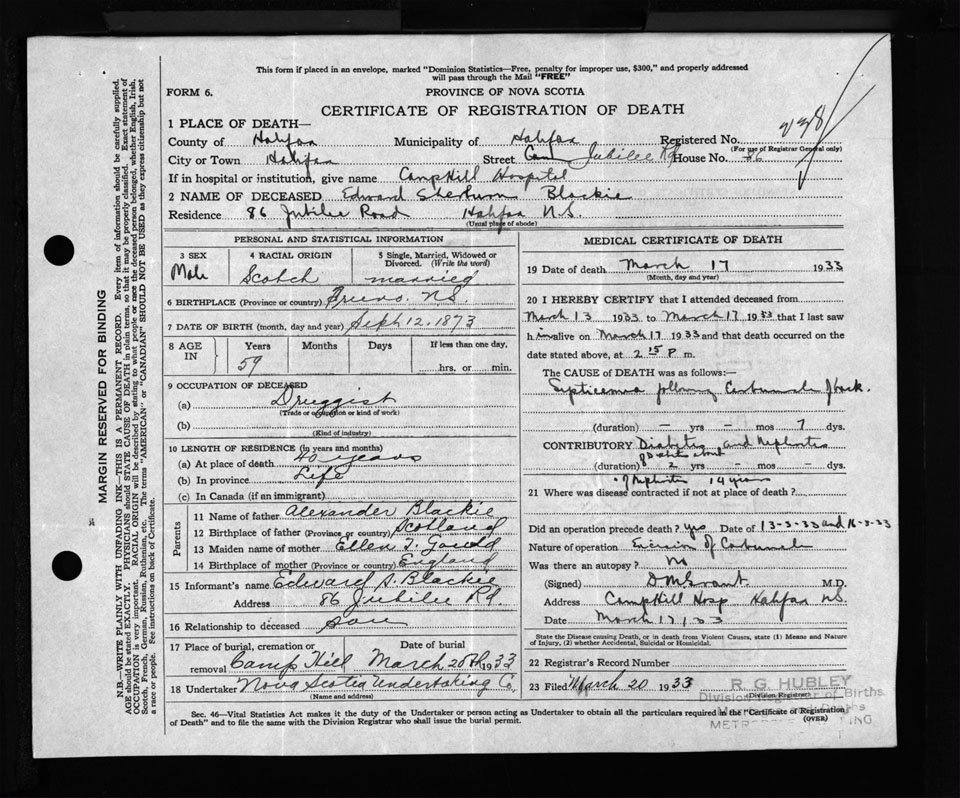 This form if placed in an envelope, marked "Dominion Statistics—Free, penalty for improper use, $300," and properly addressed
will pass through the Mail "FREE"
FORM 6.
PROVINCE OF NOVA SCOTIA
CERTIFICATE OF REGISTRATION OF DEATH
1 PLACE OF DEATH—
County of Halifax Municipality of Halifax Registered No. 238
(For use of Registrar General only)
City or Town Halifax Street Jubilee Rd House No.
If in hospital or institution, give name Camp Hill Hospital
2 NAME OF DECEASED Edward Blackie
Residence 86 Jubilee Road Halifax N.S.
(Usual place of abode)
PERSONAL AND STATISTICAL INFORMATION
3 SEX
Male
4 RACIAL ORIGIN
Scotch
5 Single, Married, Widowed or
Divorced. (Write the word)
married
6 BIRTHPLACE (Province or country) N.S.
7 DATE OF BIRTH (month, day and year) Sept 12. 1873
8 AGE IN Years Months Days If less than one day,
59 hrs. or min.
9 OCCUPATION OF DECEASED
(a) Druggist
(Trade or occupation or kind of work)
(b)
(Kind of industry)
10 LENGTH OF RESIDENCE (in years and months)
(a) At place of death 40 years
(b) In province Life
(c) In Canada (if an immigrant)
Parents
11 Name of father Alexander Blackie
12 Birthplace of father (Province or country) Scotland
13 Maiden name of mother Ellen
14 Birthplace of mother (Province or country) England
15 Informant's name Edward S. Blackie
Address 86 Jubilee Rd.
16 Relationship to deceased son
17 Place of burial, cremation or Date of burial
removal Camp Hill March 20th 1933
18 Undertaker Nova Scotia Undertaking Co.
(Name and address)
MEDICAL CERTIFICATE OF DEATH
19 Date of death March 17 1933
(Month, day and year)
20 I HEREBY CERTIFY that I attended deceased from
March 13 1933 to March 17 1933 that I last saw
h im alive on March 17 1933 and that death occurred on the
date stated above, at 2 15 P m.
The CAUSE OF DEATH was as follows:—
Septicemia following Carbuncle of back.
(duration) – yrs – mos 7 dys.
CONTRIBUTORY Diabetes and Nephritis
(duration) 2 yrs – mos – dys.
of Nephritis 14 years
21 Where was disease contracted if not at place of death?
Did an operation precede death? Yes Date of 13-3-33 and 16-3-33
Nature of operation Excision of Carbuncle
Was there an autopsy? No
(Signed) D M Grant M.D.
Address Camp Hill Hosp Halifax N.S.
Date March 17, 33
State the Disease causing Death, or in death from Violent Causes, state (1) Means and Nature
of Injury, (2) whether Accidental, Suicidal or Homicidal.
22 Registrar's Record Number
23 Filed March 20 1933
(Division Registrar)
R. G. HUBLEY
Division Registrar of Births
Sec. 46—Vital Statistics Act makes it the duty of the Undertaker or person acting as Undertaker to obtain all the particulars required in the "Certificate of Registration
of Death" and to file the same with the Division Registrar who shall issue the burial permit. (OVER)
MARGIN RESERVED FOR BINDING
N.B.—WRITE PLAINLY WITH UNFADING INK—THIS IS A PERMANENT RECORD. Every item of information should be carefully supplied.
AGE should be stated EXACTLY. PHYSICIANS should STATE CAUSE OF DEATH in plain terms, so that it may be properly classified. Exact statement of
OCCUPATION is very important. RACIAL ORIGIN will be described by stating to what people or race the deceased person belonged, whether English, Irish,
Scotch, French, German, Russian, Ruthenian, etc. The terms "AMERICAN" or "CANADIAN" SHOULD NOT BE USED as they express citizenship but not
a race or people. See instructions on back of Certificate.